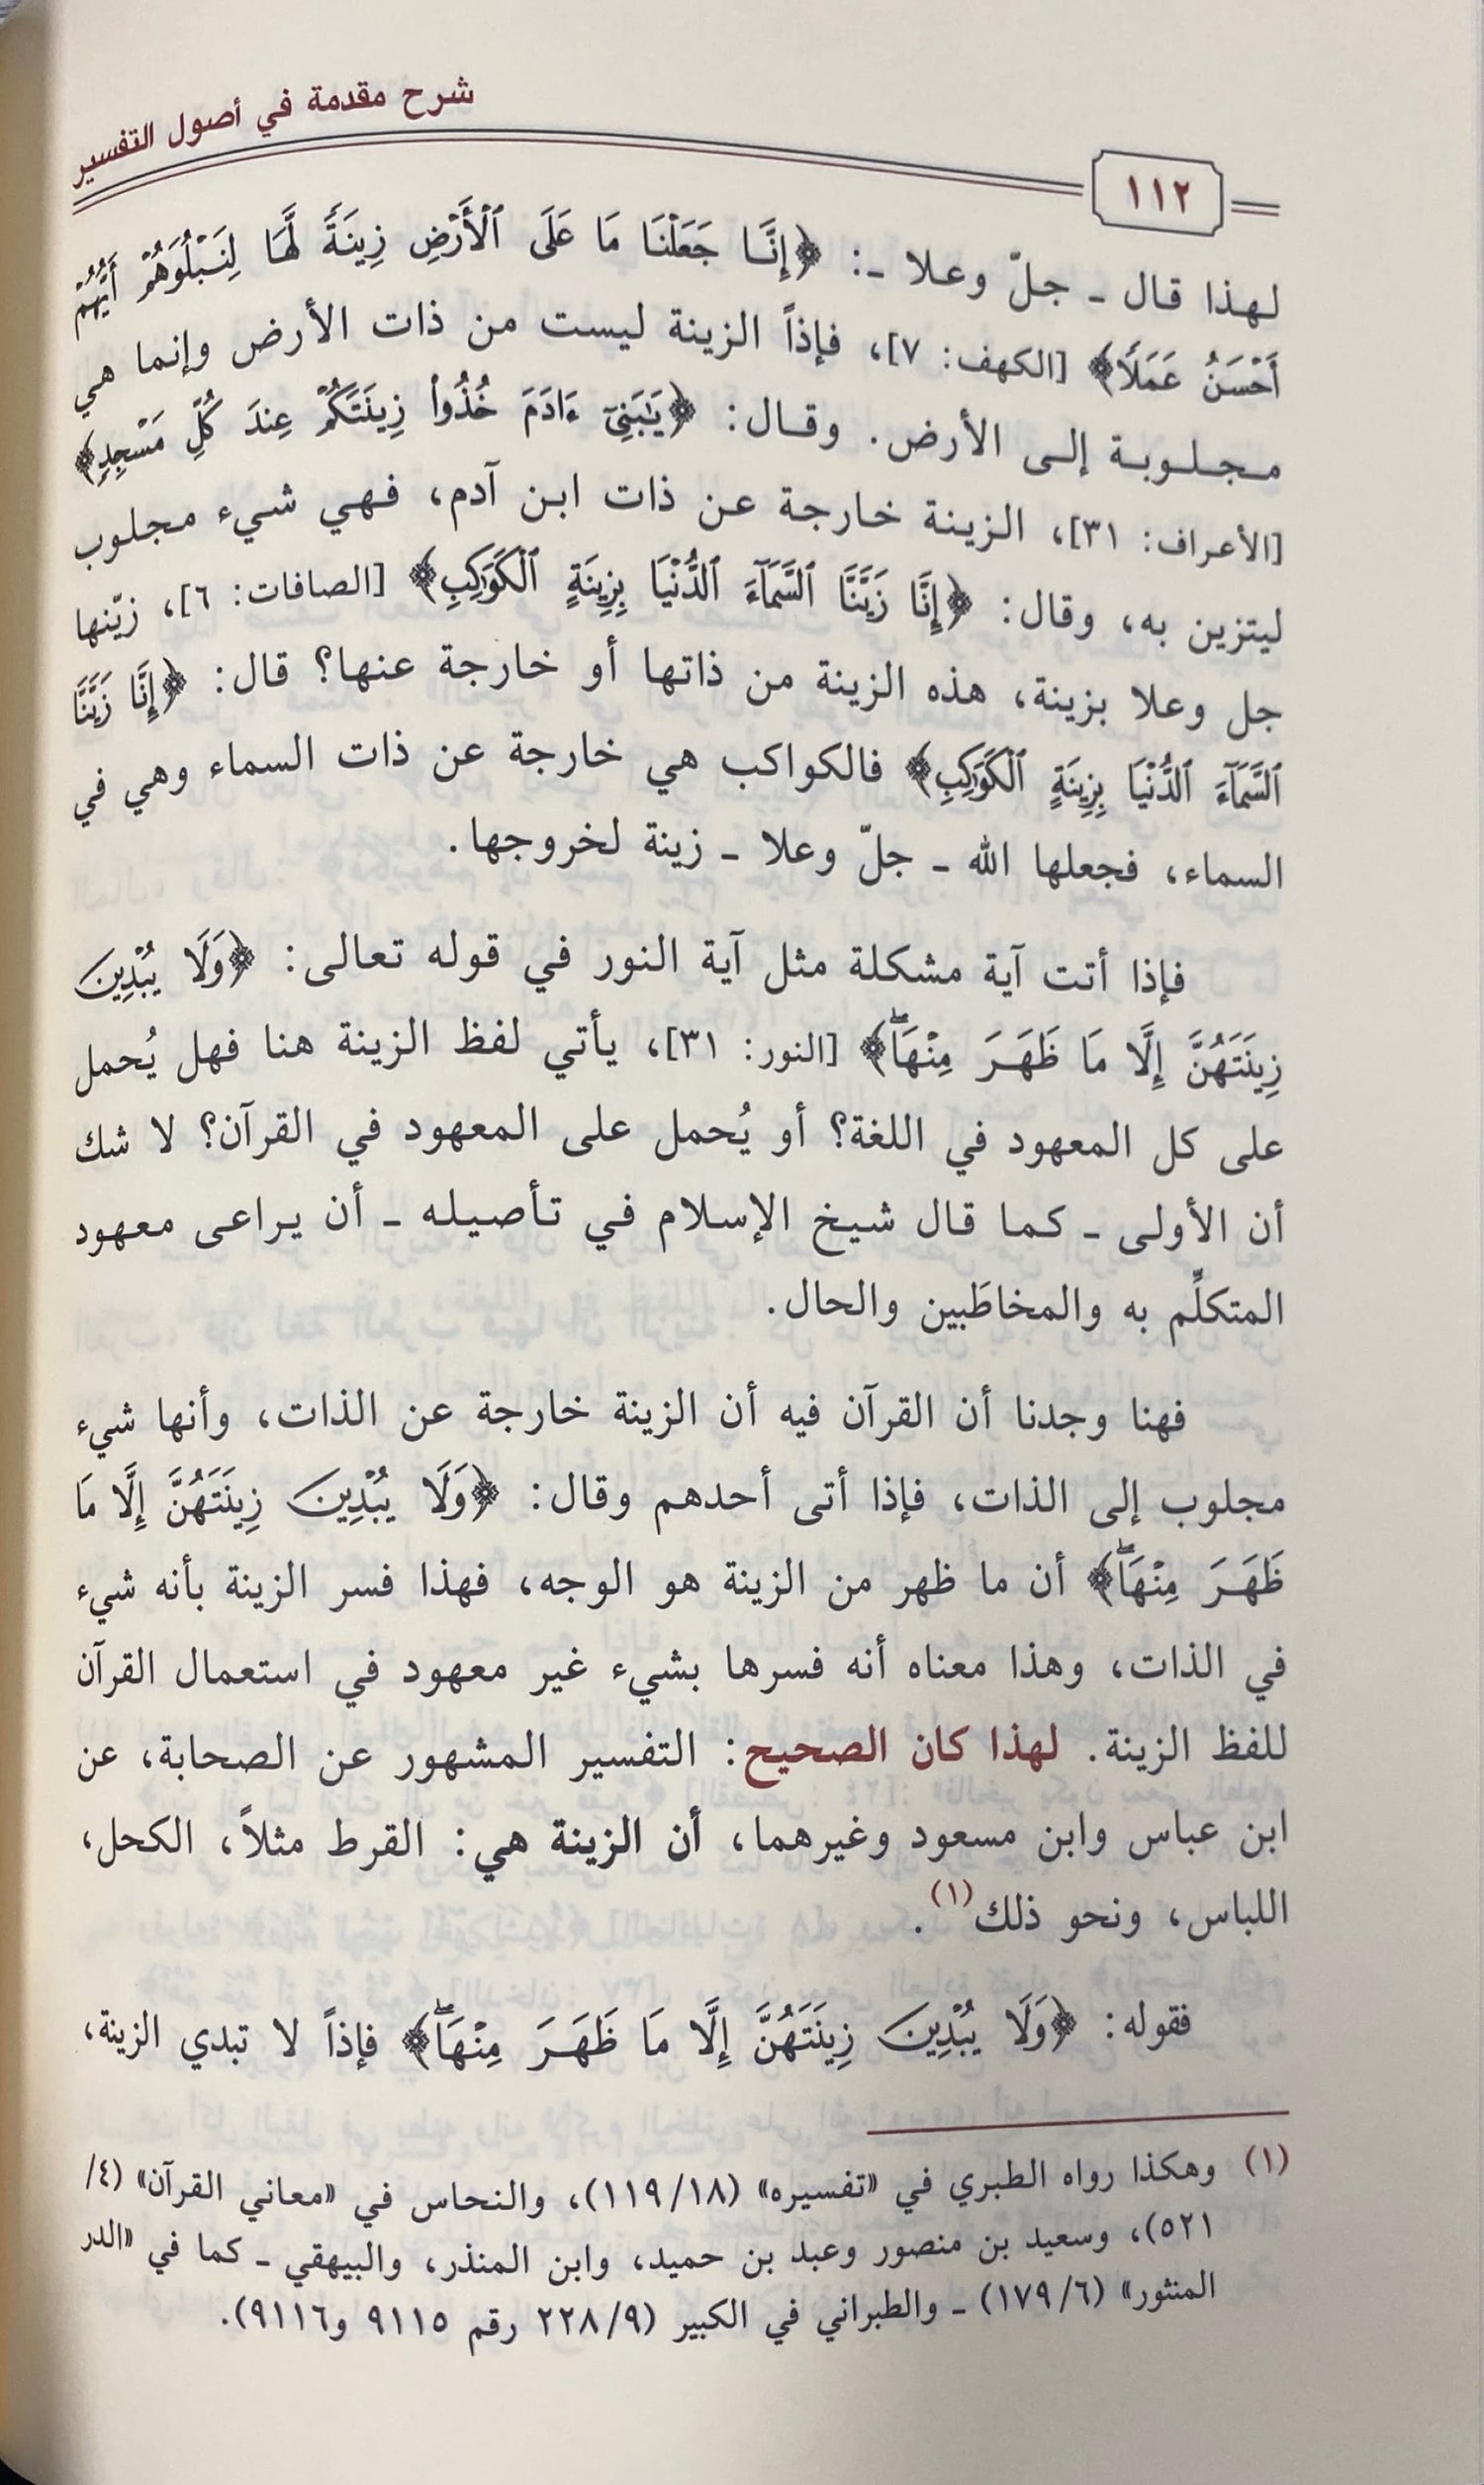 شرح مقدمة في أصول التفسير
١١٢
لهذا قال ـ جلّ وعلا ـ: ﴿إِنَّا جَعَلْنَا مَا عَلَى ٱلْأَرْضِ زِينَةً لَّهَا لِنَبْلُوَهُمْ أَيُّهُمْ
أَحْسَنُ عَمَلًا﴾ [الكهف: ٧]، فإذاً الزينة ليست من ذات الأرض وإنما هي
مجلوبة إلى الأرض. وقال: ﴿يَٰبَنِىٓ ءَادَمَ خُذُوا۟ زِينَتَكُمْ عِندَ كُلِّ مَسْجِدٍ﴾
[الأعراف: ٣١]، الزينة خارجة عن ذات ابن آدم، فهي شيء مجلوب
ليتزين به، وقال: ﴿إِنَّا زَيَّنَّا ٱلسَّمَآءَ ٱلدُّنْيَا بِزِينَةٍ ٱلْكَوَاكِبِ﴾ [الصافات: ٦]، زيّنها
جل وعلا بزينة، هذه الزينة من ذاتها أو خارجة عنها؟ قال: ﴿إِنَّا زَيَّنَّا
ٱلسَّمَآءَ ٱلدُّنْيَا بِزِينَةٍ ٱلْكَوَاكِبِ﴾ فالكواكب هي خارجة عن ذات السماء وهي في
السماء، فجعلها الله ـ جلّ وعلا ـ زينة لخروجها.
فإذا أتت آية مشكلة مثل آية النور في قوله تعالى: ﴿وَلَا يُبْدِينَ
زِينَتَهُنَّ إِلَّا مَا ظَهَرَ مِنْهَاۖ﴾ [النور: ٣١]، يأتي لفظ الزينة هنا فهل يُحمل
على كل المعهود في اللغة؟ أو يُحمل على المعهود في القرآن؟ لا شك
أن الأولى ـ كما قال شيخ الإسلام في تأصيله ـ أن يراعى معهود
المتكلِّم به والمخاطَبين والحال.
فهنا وجدنا أن القرآن فيه أن الزينة خارجة عن الذات، وأنها شيء
مجلوب إلى الذات، فإذا أتى أحدهم وقال: ﴿وَلَا يُبْدِينَ زِينَتَهُنَّ إِلَّا مَا
ظَهَرَ مِنْهَاۖ﴾ أن ما ظهر من الزينة هو الوجه، فهذا فسر الزينة بأنه شيء
في الذات، وهذا معناه أنه فسرها بشيء غير معهود في استعمال القرآن
للفظ الزينة. لهذا كان الصحيح: التفسير المشهور عن الصحابة، عن
ابن عباس وابن مسعود وغيرهما، أن الزينة هي: القرط مثلاً، الكحل،
اللباس، ونحو ذلك(١).
فقوله: ﴿وَلَا يُبْدِينَ زِينَتَهُنَّ إِلَّا مَا ظَهَرَ مِنْهَاۖ﴾ فإذاً لا تبدي الزينة،
(١) وهكذا رواه الطبري في «تفسيره» (١١٩/١٨)، والنحاس في «معاني القرآن» (٤/
٥٢١)، وسعيد بن منصور وعبد بن حميد، وابن المنذر، والبيهقي ـ كما في «الدر
المنثور» (١٧٩/٦) ـ والطبراني في الكبير (٢٢٨/٩ رقم ٩١١٥ و٩١١٦).